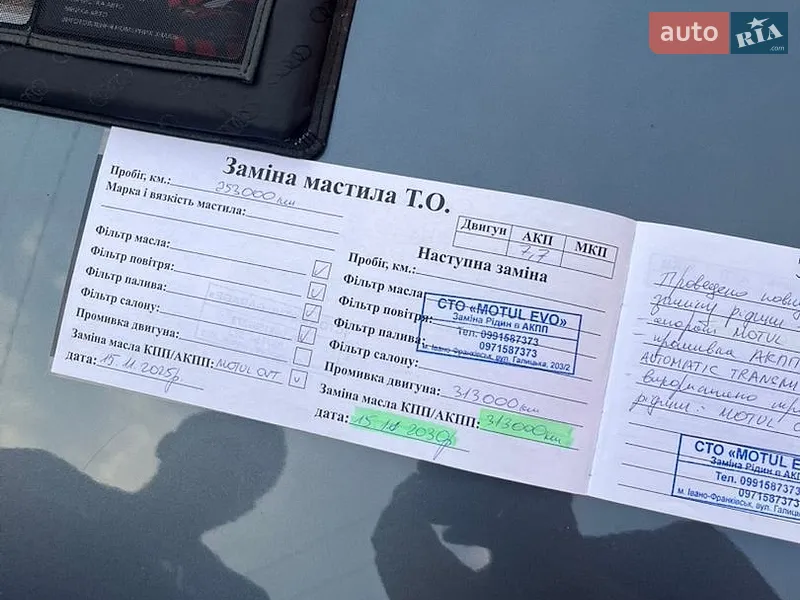 auto RIA.com
Заміна мастила Т.О.
Пробіг, км.: 253000 км
Марка і вязкість мастила:
Фільтр масла:
Фільтр повітря:
Фільтр палива:
Фільтр салону:
Промивка двигуна:
Заміна масла КПП/АКПП: MOTUL CVT
дата: 15.11.2025р
Двигун АКП МКП
7,7
Наступна заміна
Пробіг, км.:
Фільтр масла
Фільтр повітря:
Фільтр палива
Фільтр салону:
Промивка двигуна: 313000 км
Заміна масла КПП/АКПП: 313000 км
дата: 15.11.2030р
СТО «MOTUL EVO»
Заміна Рідин в АКПП
Тел. 0991587373
0971587373
м. Івано-Франківськ, вул. Галицька, 203/2
Проведено
заміну рідини
MOTUL
промивка АКПП
AUTOMATIC TRANSMI
використано
рідини: MOTUL
СТО «MOTUL E
Заміна Рідин в АКП
Тел. 0991587373
0971587373
м. Івано-Франківськ, вул. Галиць